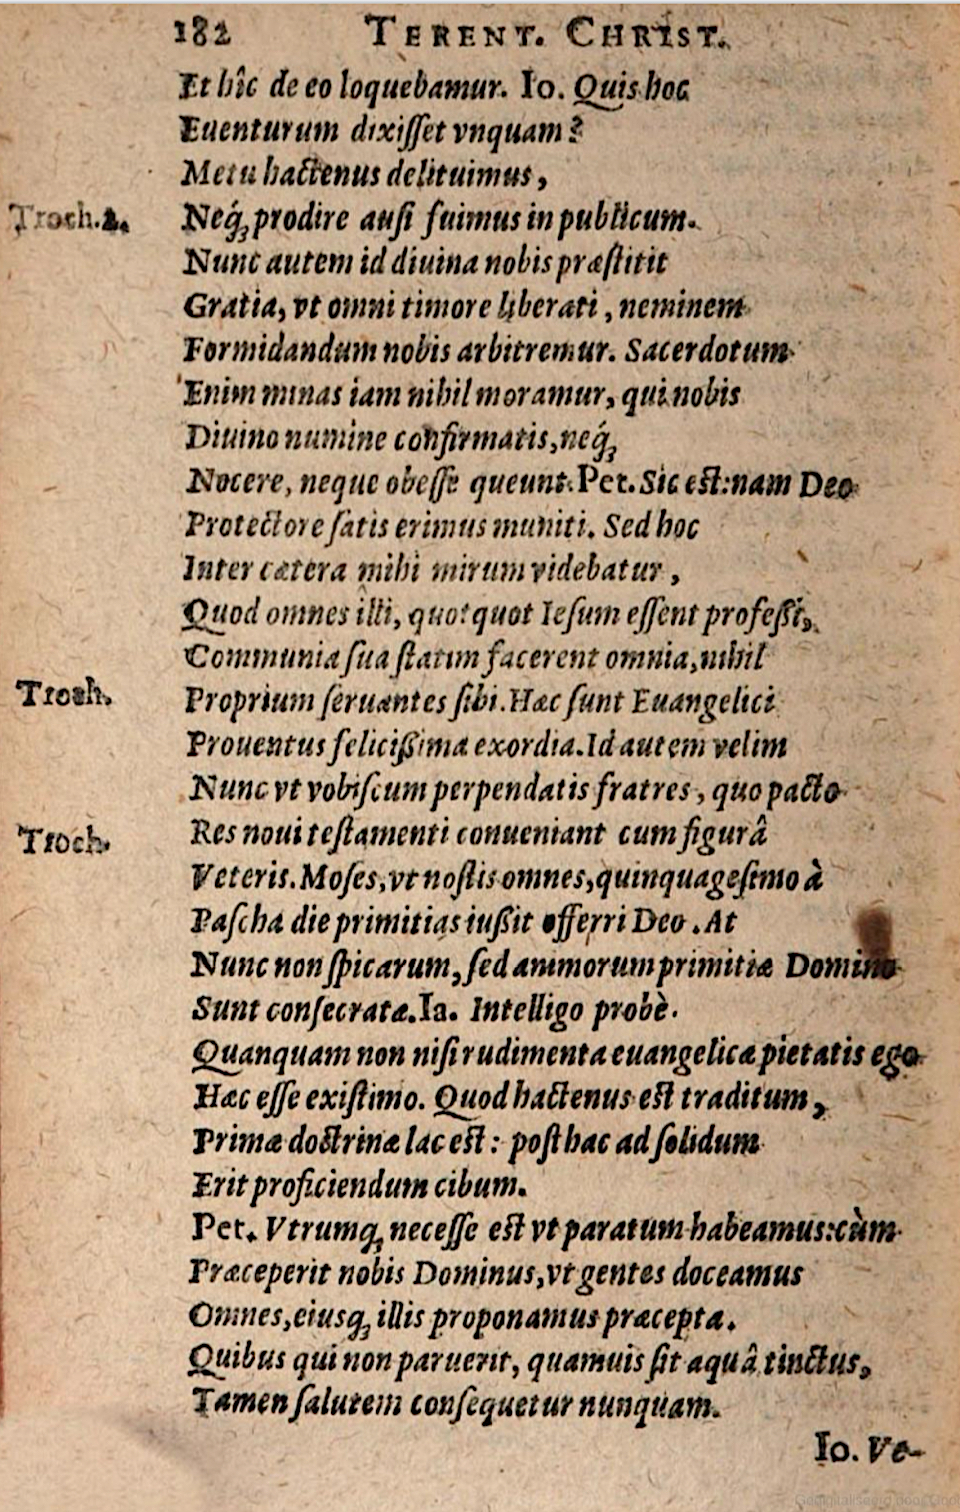 182 TERENT. CHRIST.
Et hîc de eo loquebamur. Io. Quis hoc
Euenturum dixiſſet vnquam?
Metu hactenus delituimus,
Troch.2. Neq́ꝫ prodire auſi fuimus in publicum.
Nunc autem id diuina nobis præſtitit
Gratia, vt omni timore liberati, neminem
Formidandum nobis arbitremur. Sacerdotum
Enim minas iam nihil moramur, qui nobis
Diuino numine confirmatis, neq́ꝫ
Nocere, neque obeſſe queunt. Pet. Sic eſt: nam Deo
Protectore ſatis erimus muniti. Sed hoc
Inter cætera mihi mirum videbatur,
Quod omnes illi, quotquot Ieſum eſſent profeßi,
Communia ſua ſtatim facerent omnia, nihil
Troch. Proprium ſeruantes ſibi. Hæc ſunt Euangelici
Prouentus felicißima exordia. Id autem velim
Nunc vt vobiſcum perpendatis fratres, quo pacto
Troch. Res noui teſtamenti conueniant cum figurâ
Veteris. Moſes, vt noſtis omnes, quinquageſimo à
Paſcha die primitias iußit offerri Deo. At
Nunc non ſpicarum, ſed animorum primitiæ Domino
Sunt conſecratæ. Ia. Intelligo probè.
Quanquam non niſi rudimenta euangelicæ pietatis ego
Hæc eſſe exiſtimo. Quod hactenus eſt traditum,
Primæ doctrinæ lac eſt: poſt hac ad ſolidum
Erit proficiendum cibum.
Pet. Vtrumqꝫ neceſſe eſt vt paratum habeamus: cùm
Præceperit nobis Dominus, vt gentes doceamus
Omnes, eiusqꝫ illis proponamus præcepta.
Quibus qui non paruerit, quamuis ſit aquâ tinctus,
Tamen ſalutem conſequetur nunquam.
Io. Ve-